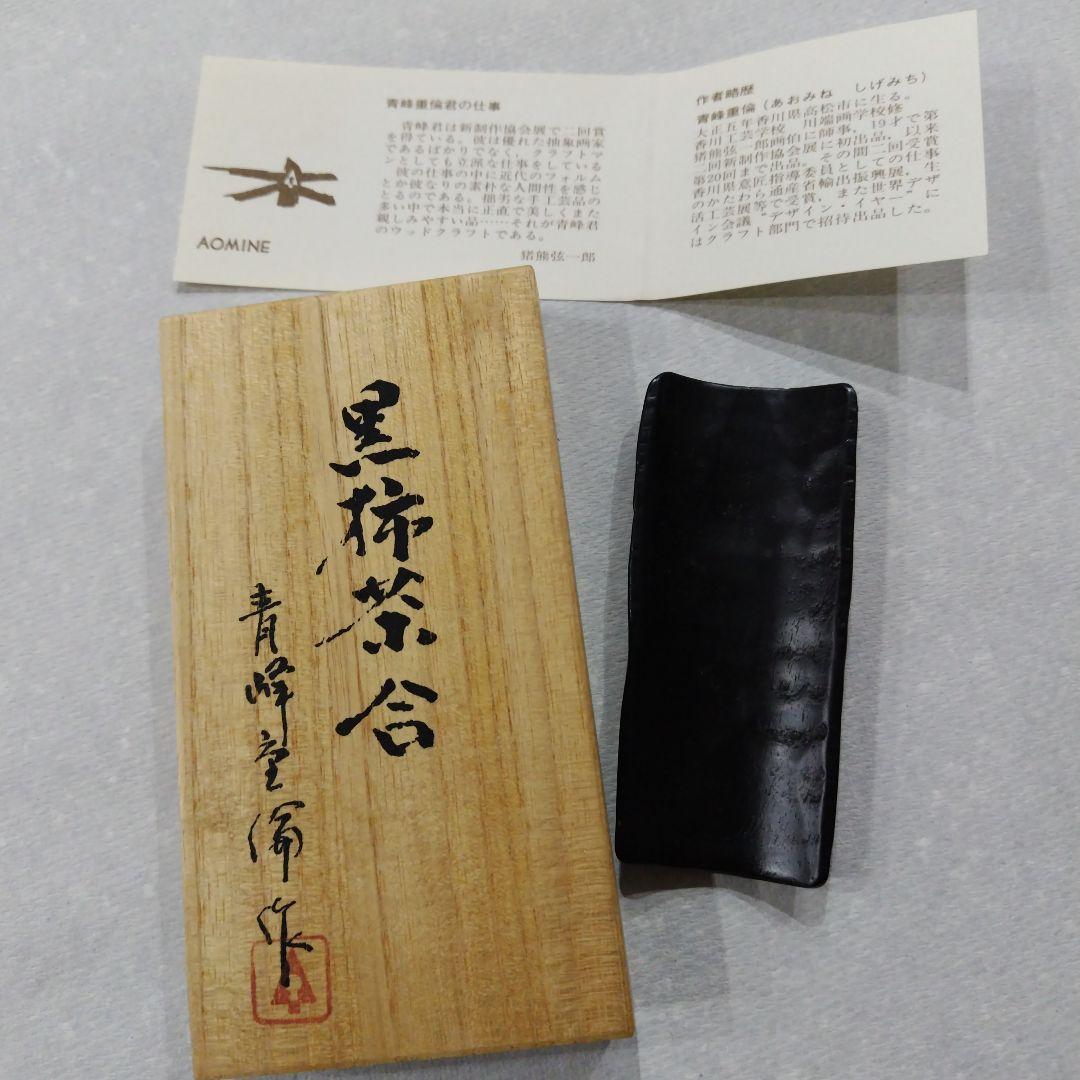 青峰重倫君の仕事
青峰君は新制作協会展で二回賞
を得ている。彼は優れた抽象画家
であるばかりでなく、クラフトマ
ンとしても立派な仕事をしている
彼の仕事の中に近代のフォルム
とか彼なりの素朴な人間性を感じ
とるのである。拙劣な手工芸品の
多い中で本当に正直で美しくまた
親しみやすい品……それが青峰君
のウッドクラフトである。
猪熊弦一郎
AOMINE
作者略歴
青峰重倫(あおみね しげみち)
大正五年香川県高松市に生る。
香川工芸学校 川端画学校修
猪熊弦一郎画伯に師事、19才で第
一回新制作協会展に初出品、以来
第20回まで出品。その間二回受賞
香川県意匠指導委員としての仕事
のかたわら通産省輸出振興展、生
活工芸展等で受賞、また世界デザ
イン会議“デザイン・イヤー”に
はクラフト部門で招待出品した。
黒柿茶合
青峰重倫作